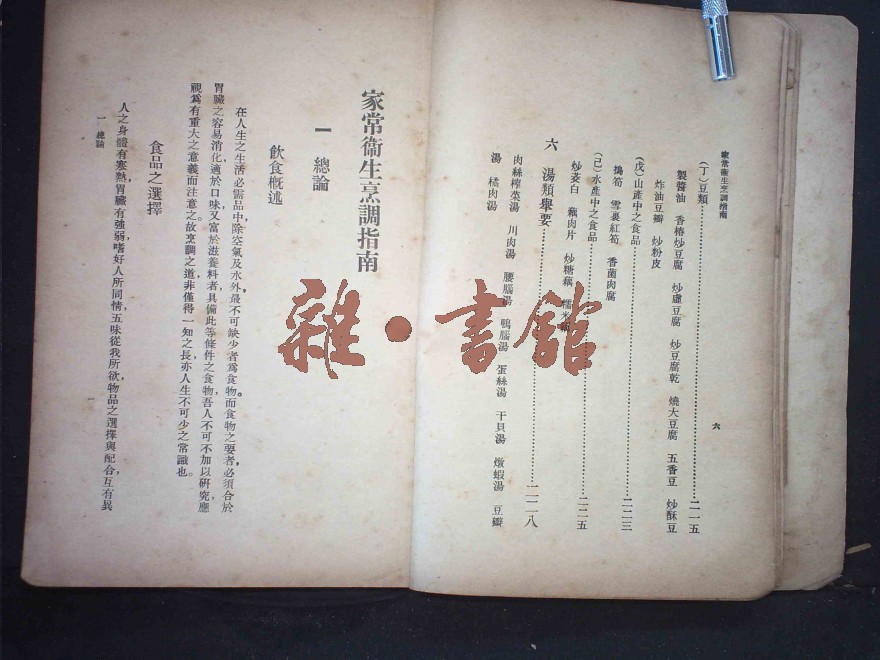 家常衞生烹調指南
六
(丁)豆類……二一五
製醬油 香椿炒豆腐 炒盧豆腐 炒豆腐乾 燒大豆腐 五香豆 炒酥豆
炸油豆瓣 炒粉皮
(戊)山產中之食品……二二三
搗筍 雪裏紅筍 香菌肉腐
(己)水產中之食品……二二五
炒茭白 藕肉片 炒糖藕 糯米
六 湯類舉要……二二八
肉絲榨菜湯 川肉湯 腰腦湯 鴨腦湯 蛋絲湯 干貝湯 燉蝦湯 豆瓣
湯 橘肉湯
家常衞生烹調指南
一 總論
飲食概述
在人生之生活必需品中,除空氣及水外,最不可缺少者爲食物。而食物之要者,必須合於
胃臟之容易消化,適於口味,又富於滋養料者,具備此等條件之食物,吾人不可不加以研究,應
視爲有重大之意義而注意之。故烹調之道,非僅得一知之長,亦人生不可少之常識也。
食品之選擇
人之身體有寒熱,胃臟有強弱,嗜好人所同情,五味從我所欲,物品之選擇與配合,互有異
一 總論
雜·書館